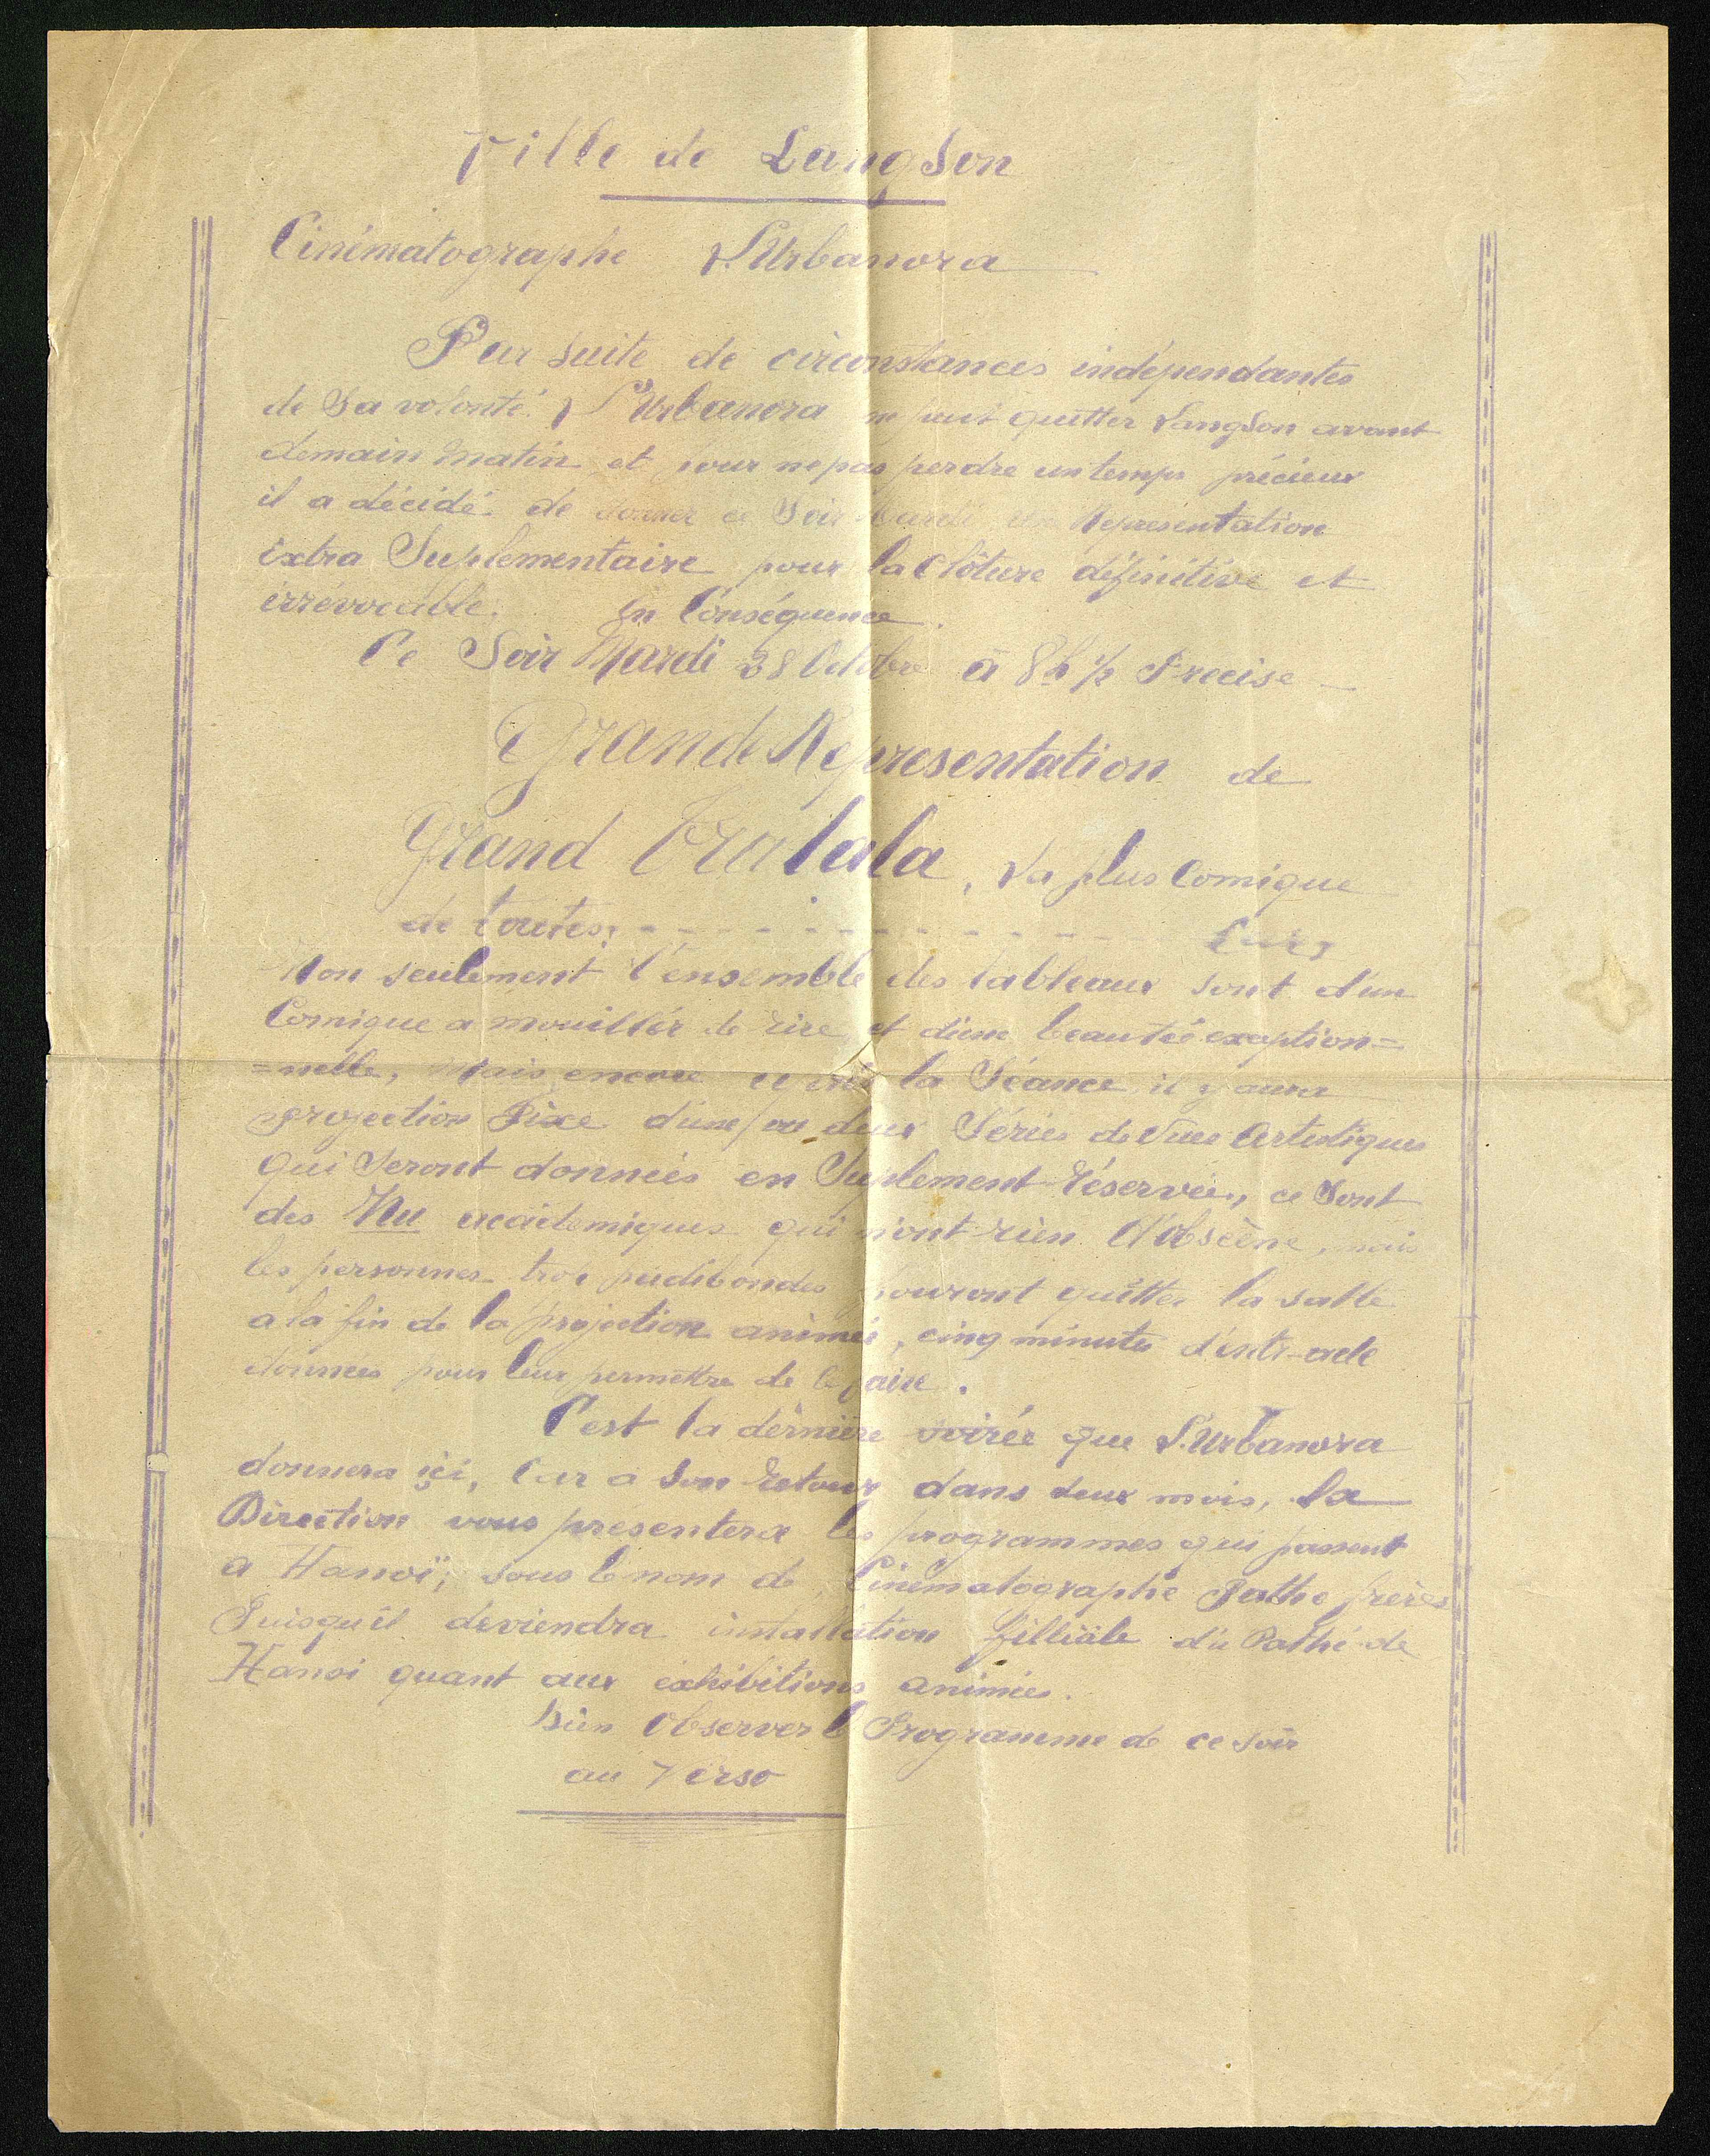 Ville de LangSon
Cinématographe L'Urbanora
Par suite de circonstances indépendantes
de Sa volonté. L'Urbanora ne peut quitter LangSon avant
demain matin et pour ne pas perdre un temps précieux
il a décidé de donner ce Soir Mardi une Representation
Extra Suplémentaire pour la Clôture définitive et
irrévocable. En Conséquence.
Ce Soir Mardi 28 Octobre à 8h ½ Precise
Grande Représentation de
Grand Tralala, La plus Comique
de toutes.
Non seulement l'ensemble des tableaux sont d'un
Comique a mouiller de rire et d'une beautée exaption=
=nelle, Mais encore la Séance il y aura
projection Fixe d'une ou deux Séries de Vues Artistiques
qui Seront données en Suplement réservée, ce Sont
des Nu académiques qui n'ont rien d'obscène, mais
les personnes trop pudibondes pouront quitter la salle
a la fin de la projection animée, cinq minutes d'entr-acte
données pour leur permettre de le faire.
C'est la dernière soirée que L'Urbanora
donnera içi, Car a Son retour dans deux mois, la
Direction vous presentera les programmes qui passent
a Hanoï, sous le nom de Cinématographe Pathé frères
Puisqu'il deviendra installation filliale du Pathé de
Hanoi quant aux exhibitions animées.
Bien Observer le Programme de ce soir
au Verso